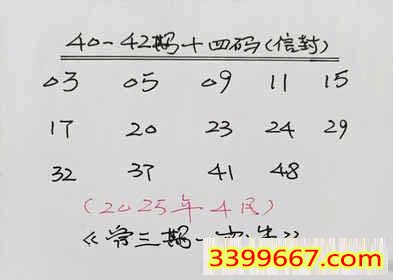 40-42期十四码(信封)
03 05 09 11 15
17 20 23 24 29
32 37 41 48
(2025年4月)
《常三期一
3399667.com